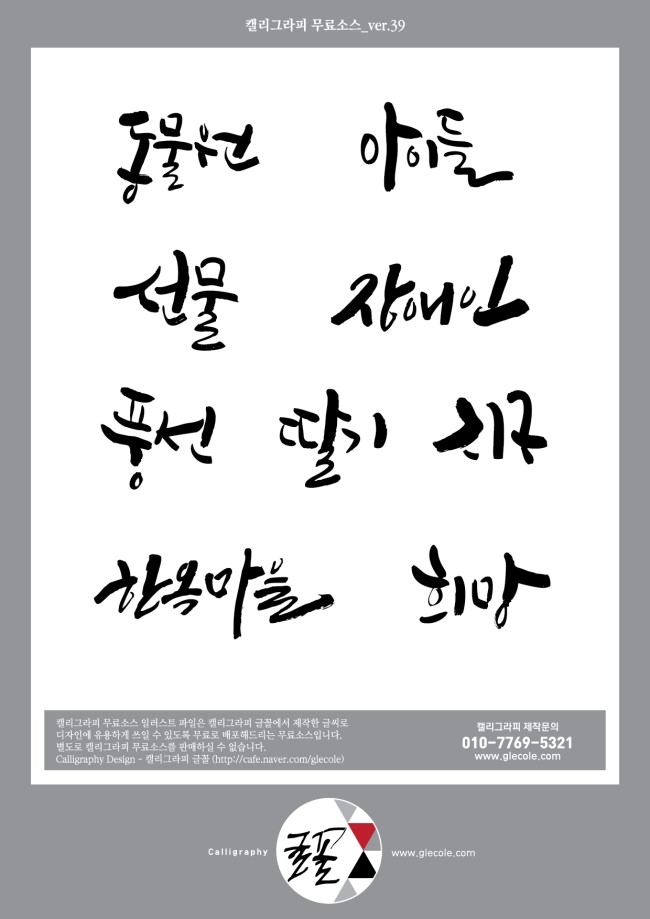 캘리그라피 무료소스_ver.39
동물원 아이들
선물 장애인
풍선 딸기 친구
한옥마을 희망
캘리그라피 무료소스 일러스트 파일은 캘리그라피 글꼴에서 제작한 글씨로
디자인에 유용하게 쓰일 수 있도록 무료로 배포해드리는 무료소스입니다.
별도로 캘리그라피 무료소스를 판매하실 수 없습니다.
Calligraphy Design - 캘리그라피 글꼴 (http://cafe.naver.com/glecole)
캘리그라피 제작문의
010-7769-5321
www.glecole.com
Calligraphy 글꼴 www.glecole.com